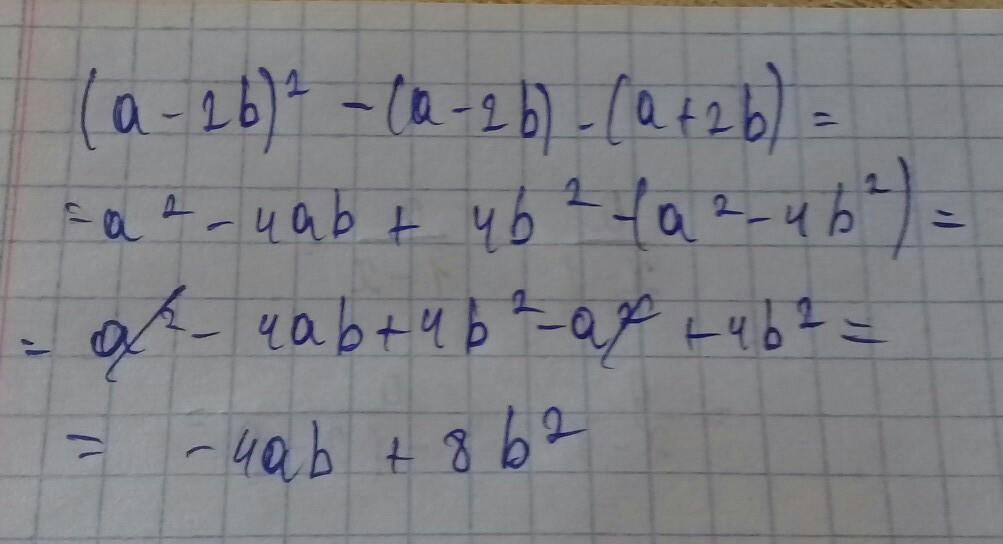 (a - 2b)² - (a - 2b) - (a + 2b) =
= a² - 4ab + 4b² - (a² - 4b²) =
= a² - 4ab + 4b² - a² + 4b² =
= - 4ab + 8b²